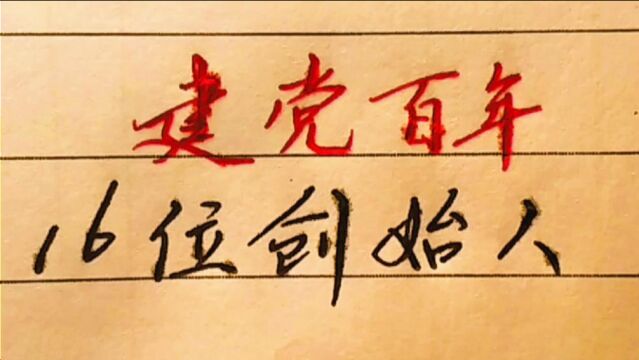 建党百年
16位创始人